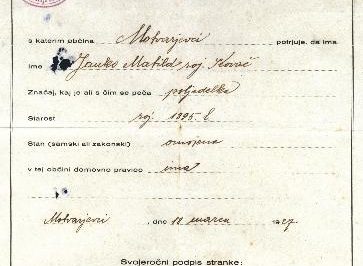 s katerim občina Motvarjevci potrjuje, da ima
Ime Janko Matild roj. Kovač
Značaj, kaj je ali s čim se peča poljedelka
Starost roj 1895 l
Stan (samski ali zakonski) omožena
v tej občini domovno pravico ima
Motvarjevci, dne 12 marca 1927
Svojeročni podpis stranke: